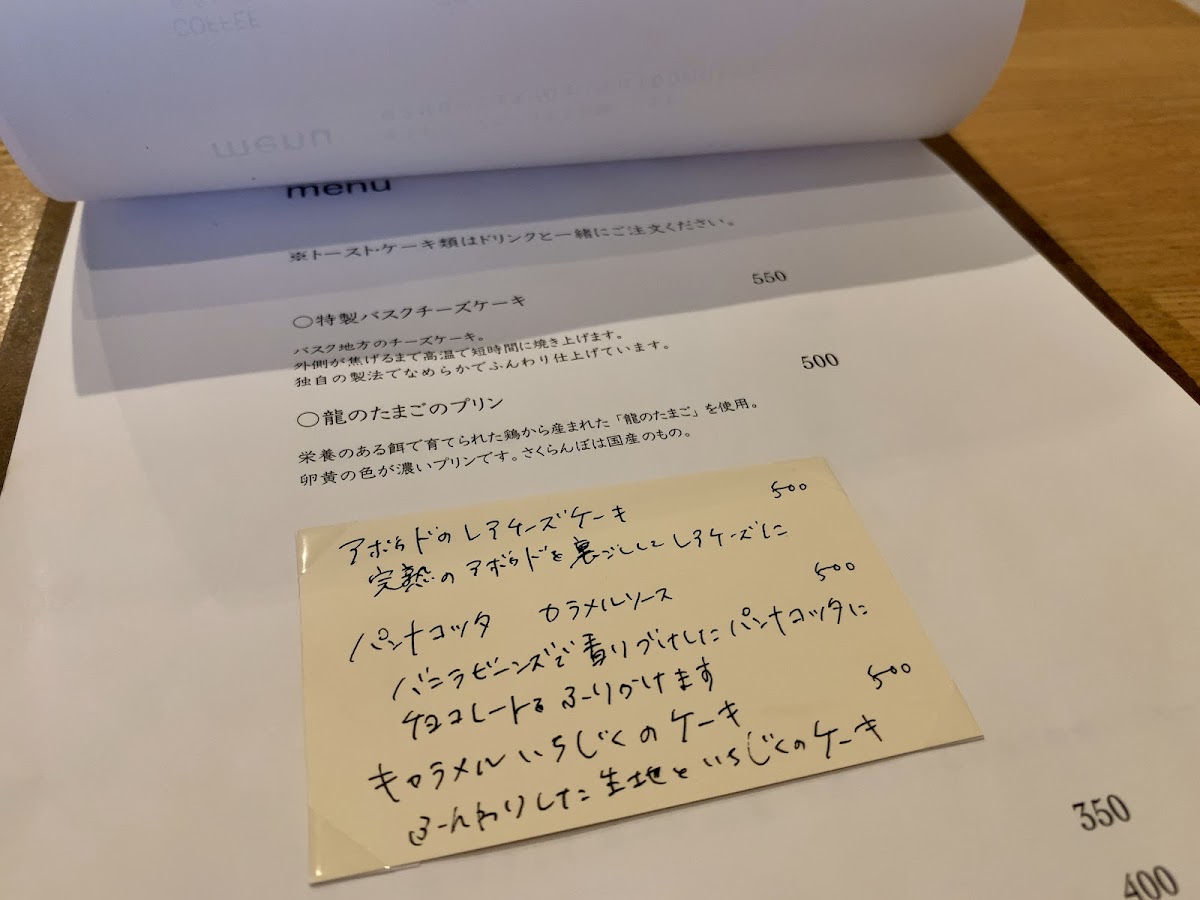 COFFEE
menu
menu
※トースト・ケーキ類はドリンクと一緒にご注文ください。
○特製バスクチーズケーキ 550
バスク地方のチーズケーキ。
外側が焦げるまで高温で短時間に焼き上げます。
独自の製法でなめらかでふんわり仕上げています。
○龍のたまごのプリン 500
栄養のある餌で育てられた鶏から産まれた「龍のたまご」を使用。
卵黄の色が濃いプリンです。さくらんぼは国産のもの。
アボカドのレアチーズケーキ 500
完熟のアボカドを裏ごししてレアチーズに
パンナコッタ カラメルソース 500
バニラビーンズで香りづけしたパンナコッタに
チョコレートをふりかけます
キャラメルいちじくのケーキ 500
ふんわりした生地といちじくのケーキ
350
400